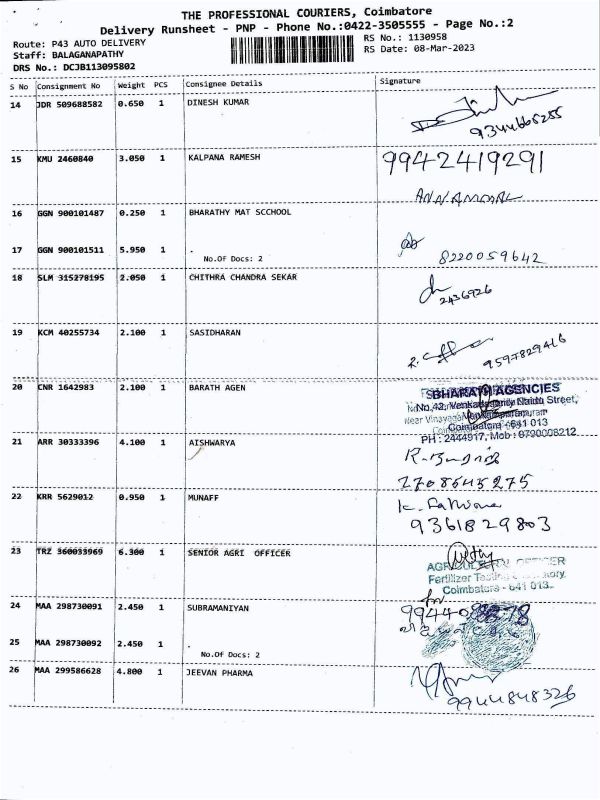 THE PROFESSIONAL COURIERS, Coimbatore
Delivery Runsheet - PNP - Phone No.:0422-3505555 - Page No.:2
Route: P43 AUTO DELIVERY
Staff: BALAGANAPATHY
DRS No.: DCJB113095802
RS No.: 1130958
RS Date: 08-Mar-2023
S No Consignment No Weight PCS Consignee Details Signature
14 JDR 509688582 0.650 1 DINESH KUMAR
9344665255
15 KMU 2460840 3.050 1 KALPANA RAMESH 9942419291
16 GGN 900101487 0.250 1 BHARATHY MAT SCCHOOL
17 GGN 900101511 5.950 1 .
No.Of Docs: 2
8220059642
18 SLM 315278195 2.050 1 CHITHRA CHANDRA SEKAR
2436926
19 KCM 40255734 2.100 1 SASIDHARAN
9597829416
20 CNR 1642983 2.100 1 BARATH AGEN
BHARATH AGENCIES
No.42, Naidu Street,
Coimbatore - 641 013
PH : 2444917, Mob : 8790008212
21 ARR 30333396 4.100 1 AISHWARYA
2708645275
22 KRR 5629012 0.950 1 MUNAFF
9361829803
23 TRZ 360033969 6.300 1 SENIOR AGRI OFFICER
AGRICULTURAL OFFICER
Fertilizer Testing
Coimbatore - 641 013.
24 MAA 298730091 2.450 1 SUBRAMANIYAN
25 MAA 298730092 2.450 1 .
No.Of Docs: 2
26 MAA 299586628 4.800 1 JEEVAN PHARMA
9944848326